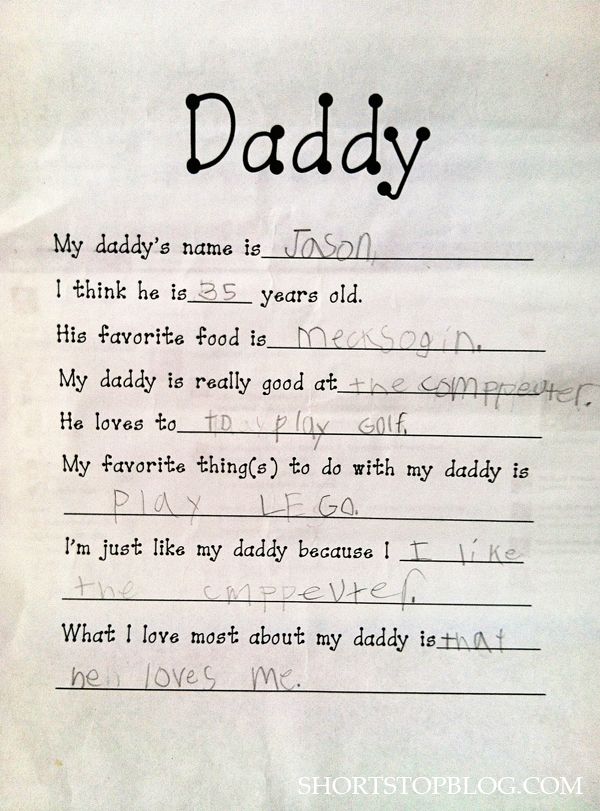 Daddy
My daddy's name is Jason.
I think he is 35 years old.
His favorite food is mecksogin.
My daddy is really good at the comppeuter.
He loves to to play GOlf.
My favorite thing(s) to do with my daddy is
play LEGO.
I'm just like my daddy because I I like
the cmppeuter.
What I love most about my daddy is that
hell loves me.
SHORTSTOPBLOG.COM